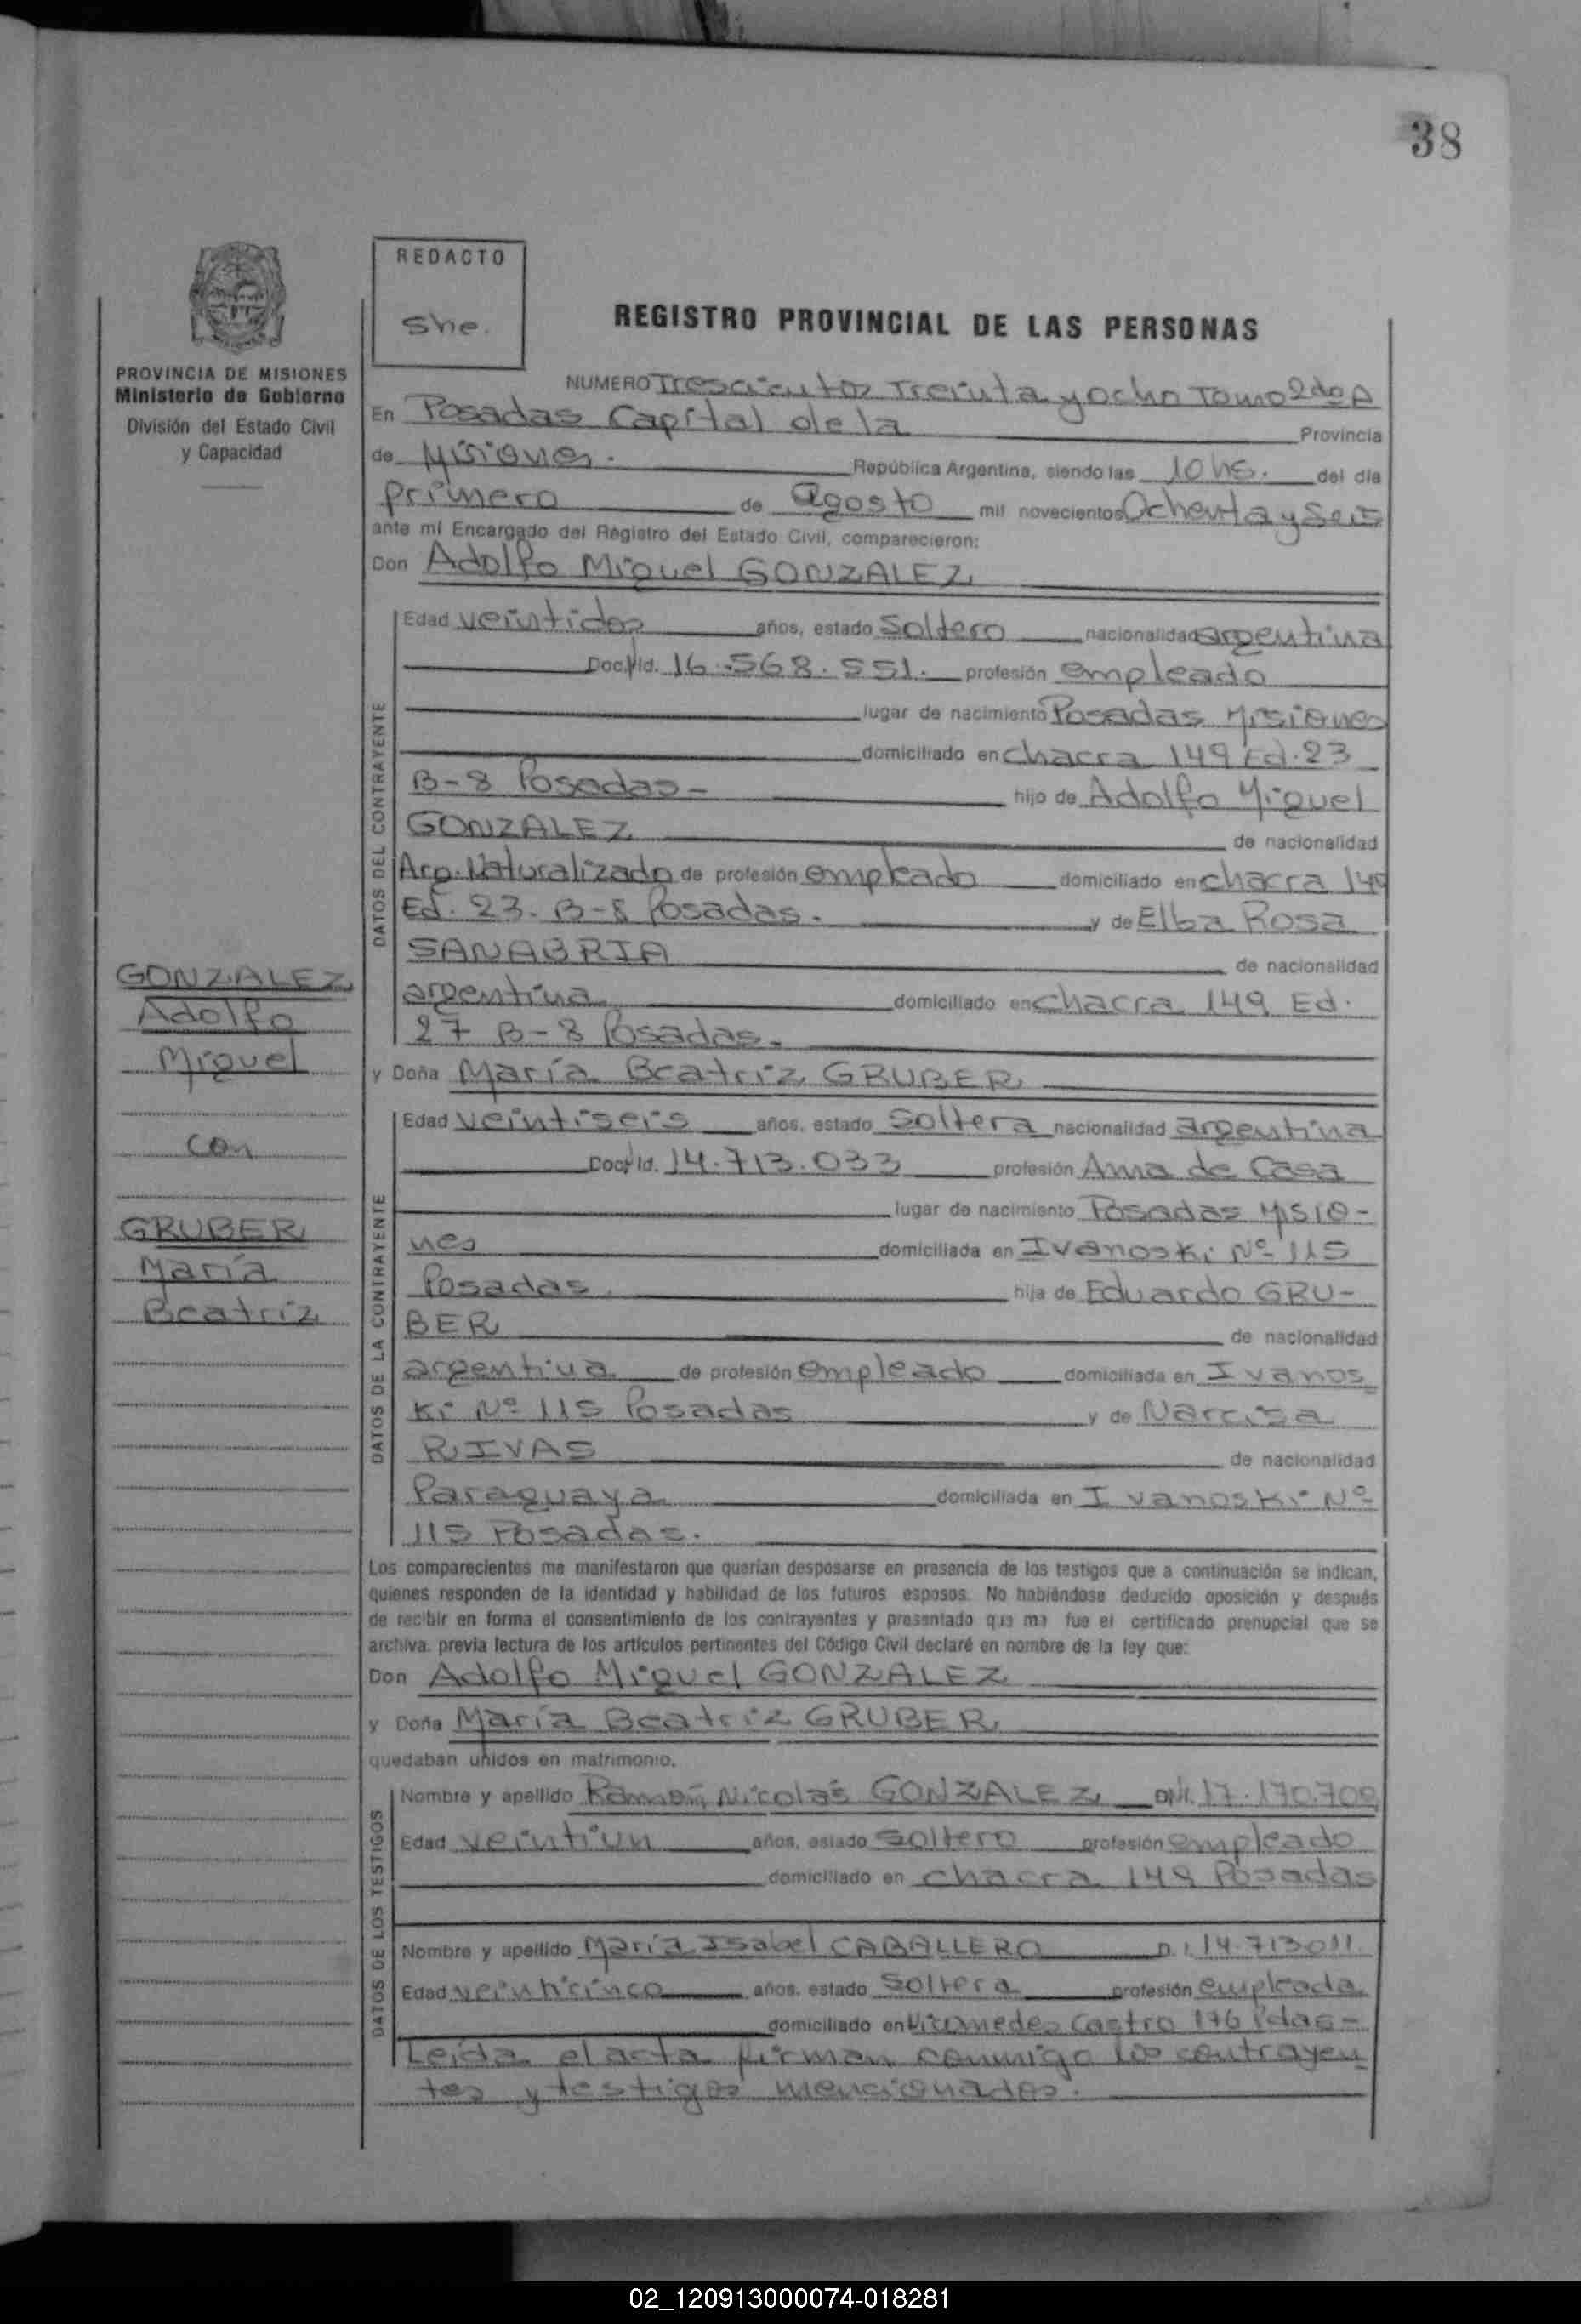 38
REDACTO
She.
REGISTRO PROVINCIAL DE LAS PERSONAS
PROVINCIA DE MISIONES
Ministerio de Gobierno
División del Estado Civil
y Capacidad
NUMERO Trescientos Treinta y ocho Tomo 2do A
En Posadas Capital de la Provincia
de Misiones. República Argentina, siendo las 10 hs. del día
primero de Agosto mil novecientos Ochenta y Seis
ante mí Encargado del Registro del Estado Civil, comparecieron:
Don Adolfo Miguel GONZALEZ
DATOS DEL CONTRAYENTE
Edad veintidos años, estado Soltero nacionalidad argentina
Doc. Id. 16.568.551. profesión empleado
lugar de nacimiento Posadas Misiones
domiciliado en chacra 149 Ed. 23
B-8 Posadas- hijo de Adolfo Miguel
GONZALEZ de nacionalidad
Arg. Naturalizado de profesión empleado domiciliado en chacra 149
Ed. 23. B-8 Posadas. y de Elba Rosa
SANABRIA de nacionalidad
argentina domiciliado en chacra 149 Ed.
27 B-8 Posadas.
y Doña María Beatriz GRUBER
GONZALEZ
Adolfo
Miguel
con
GRUBER
María
Beatriz
DATOS DE LA CONTRAYENTE
Edad veintiseis años, estado Soltera nacionalidad argentina
Doc. Id. 14.713.033 profesión Ama de Casa
lugar de nacimiento Posadas Misio-
nes domiciliada en Ivanoski Nº 115
Posadas. hija de Eduardo GRU-
BER de nacionalidad
argentina de profesión empleado domiciliada en Ivanos
ki Nº 115 Posadas y de Narcisa
RIVAS de nacionalidad
Paraguaya domiciliada en Ivanoski Nº
115 Posadas.
Los comparecientes me manifestaron que querían desposarse en presencia de los testigos que a continuación se indican,
quienes responden de la identidad y habilidad de los futuros esposos. No habiéndose deducido oposición y después
de recibir en forma el consentimiento de los contrayentes y presentado que me fue el certificado prenupcial que se
archiva, previa lectura de los artículos pertinentes del Código Civil declaré en nombre de la ley que:
Don Adolfo Miguel GONZALEZ
y Doña María Beatriz GRUBER
quedaban unidos en matrimonio.
DATOS DE LOS TESTIGOS
Nombre y apellido Ramón Nicolás GONZALEZ DNI. 17.170.709
Edad veintiun años, estado soltero profesión empleado
domiciliado en chacra 149 Posadas
Nombre y apellido María Isabel CABALLERO D.I. 14.713011.
Edad veinticinco años, estado Soltera profesión empleada
domiciliado en Nicomedes Castro 176 Pdas-
Leída el acta firman conmigo los contrayen
tes y testigos mencionados.
02_120913000074-018281